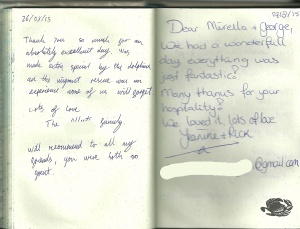 26/07/13
Thank you so much for an
absolutely excellent day. Was
made extra special by the dolphins
and the impromt rescue was an
experience none of us will forget.
Lots of love
The family
Will recommend to all my
friends, you were both so
great.
Dear Mirella + George,
We had a wonderfull
day everything was
just fantastic!
Many thanks for your
hospitality!
We loved it lots of love
Jeanine + Rick
@gmail.com